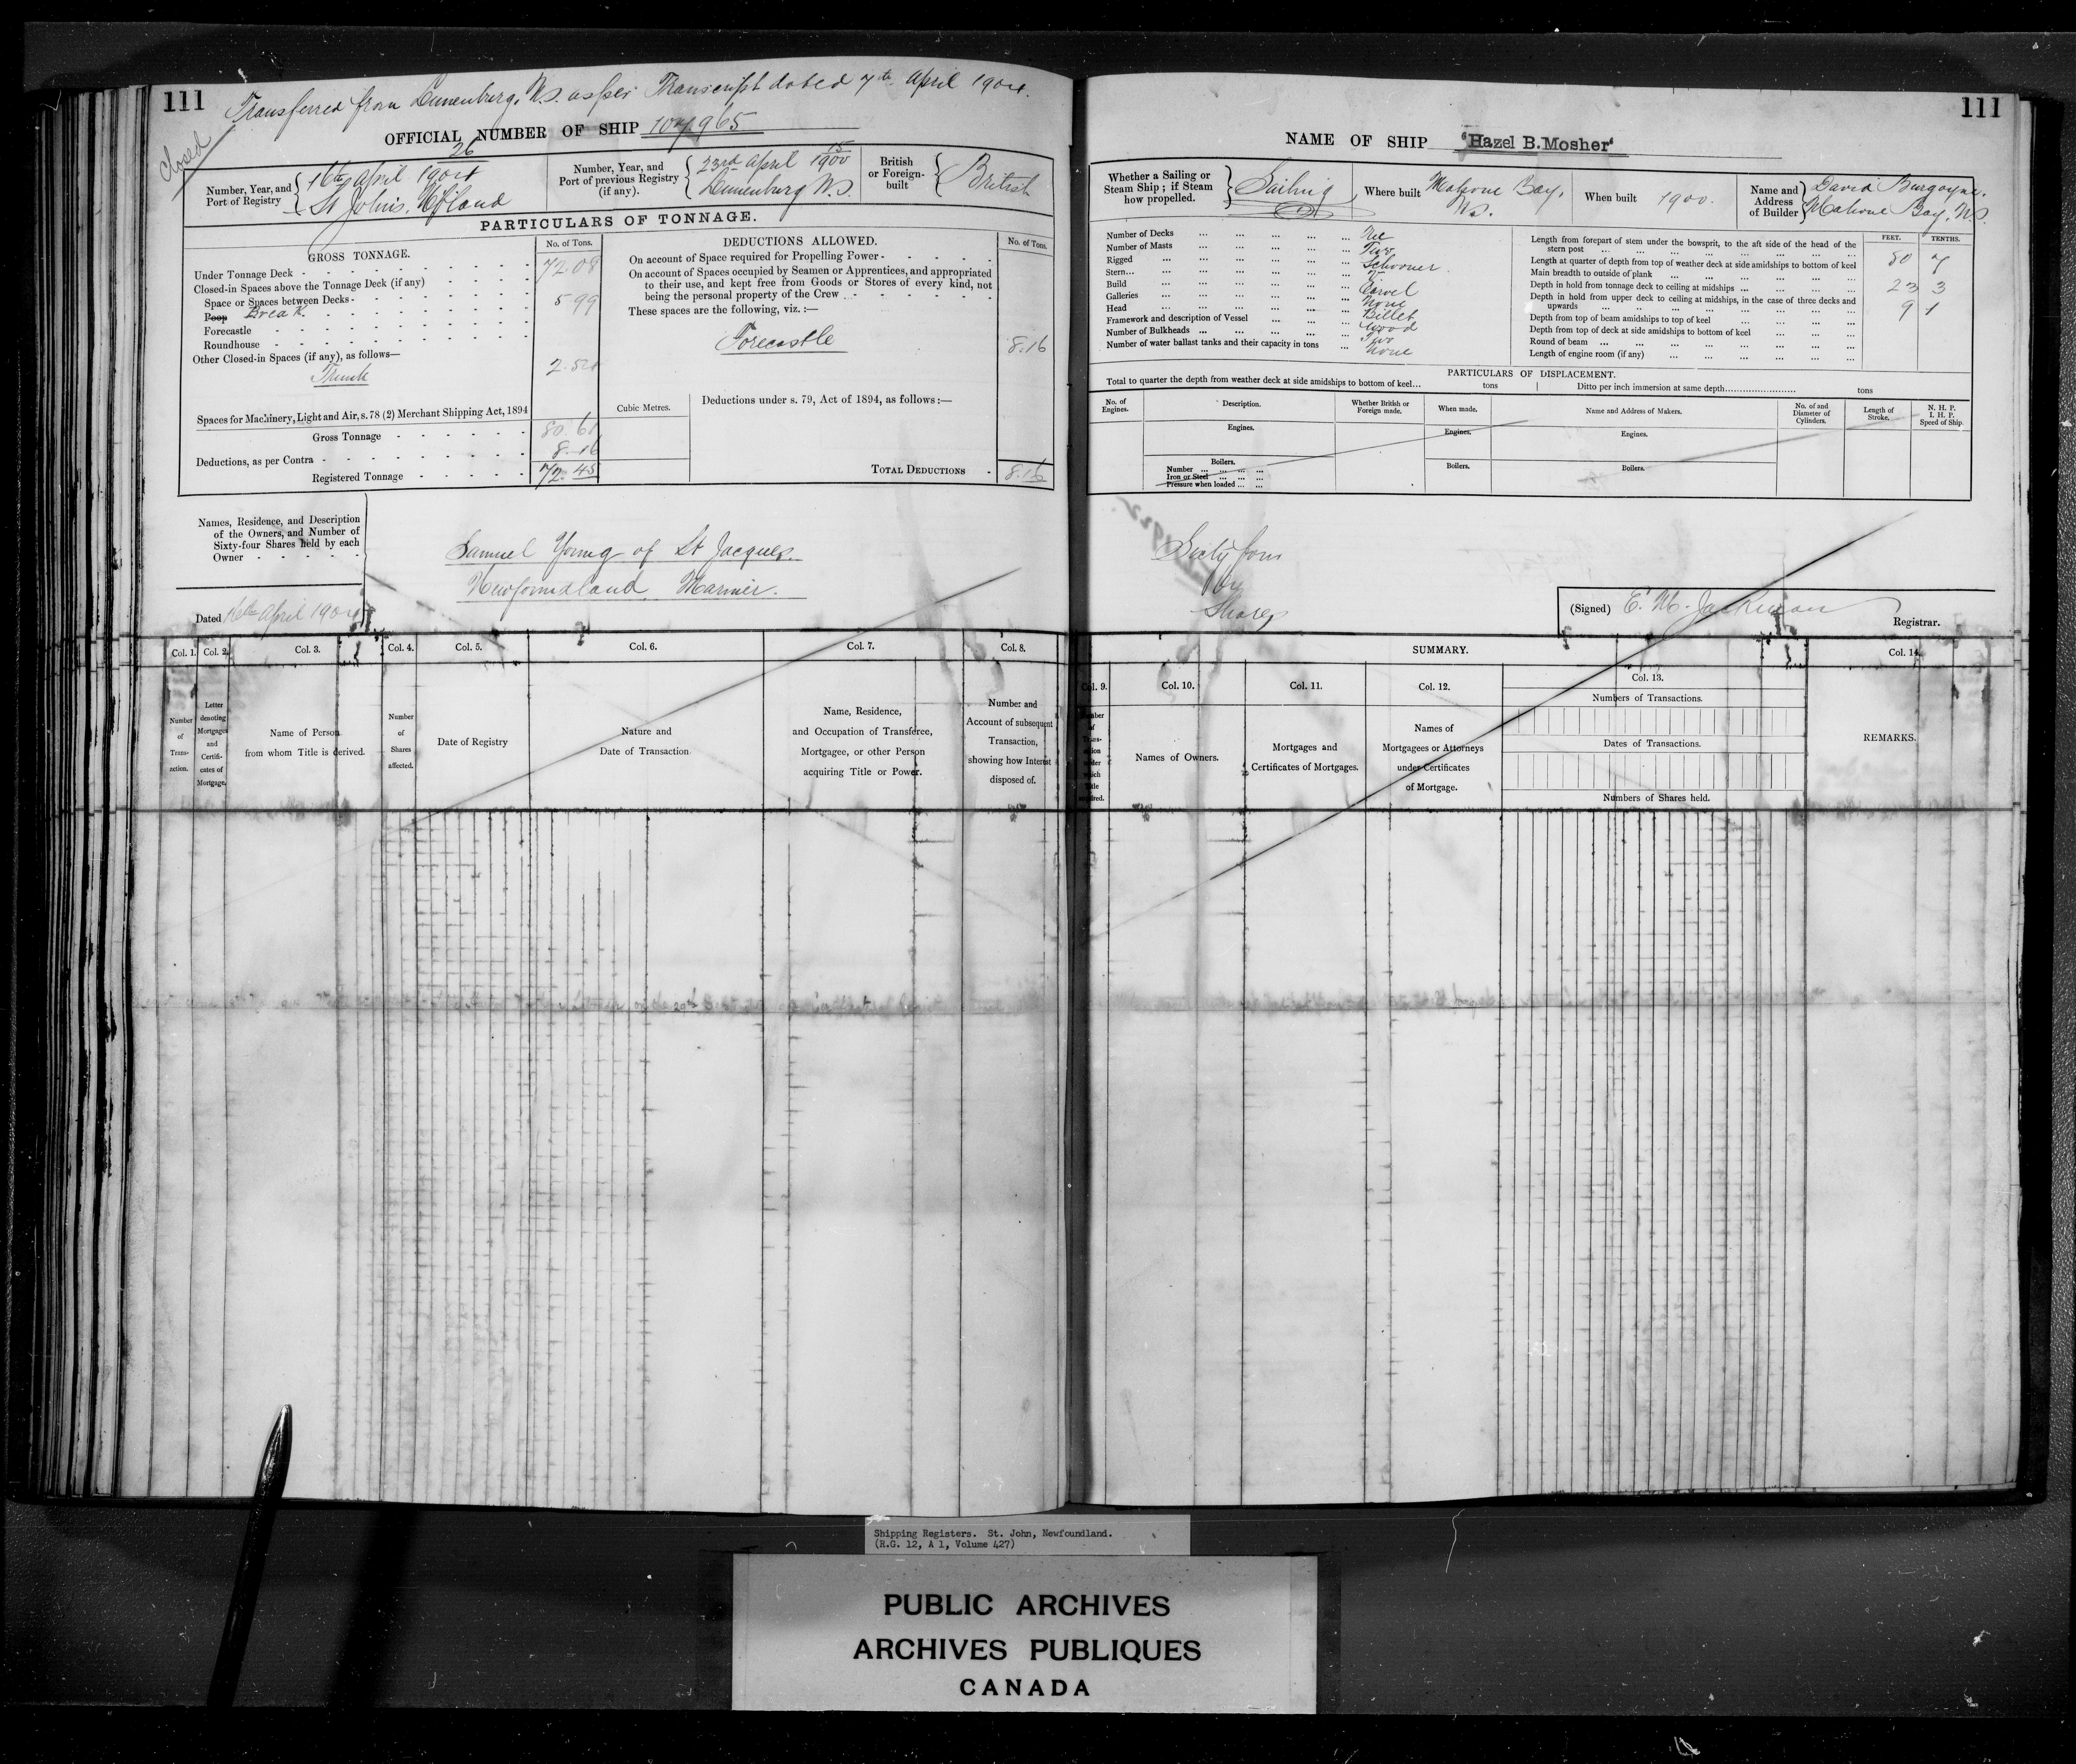 111
Transferred from Lunenburg, N.S. as per Transcript dated 7th April 1904.
closed
OFFICIAL NUMBER OF SHIP 107,965
Number, Year, and
Port of Registry
26
16th April 1904
St John's. Nfland
Number, Year, and
Port of previous Registry
(if any).
15
23rd April 1900
Lunenburg N.S.
British
or Foreign-
built
British
PARTICULARS OF TONNAGE.
GROSS TONNAGE.
No. of Tons.
Under Tonnage Deck 72.08
Closed-in Spaces above the Tonnage Deck (if any)
Space or Spaces between Decks
Poop Break 5.99
Forecastle
Roundhouse
Other Closed-in Spaces (if any), as follows—
Trunk 2.54
Spaces for Machinery, Light and Air, s. 78 (2) Merchant Shipping Act, 1894
Gross Tonnage 80 61
Deductions, as per Contra 8.16
Registered Tonnage 72.45
DEDUCTIONS ALLOWED.
No. of Tons.
On account of Space required for Propelling Power
On account of Spaces occupied by Seamen or Apprentices, and appropriated
to their use, and kept free from Goods or Stores of every kind, not
being the personal property of the Crew
These spaces are the following, viz. :—
Forecastle 8.16
Cubic Metres.
Deductions under s. 79, Act of 1894, as follows :—
TOTAL DEDUCTIONS 8.16
Names, Residence, and Description
of the Owners, and Number of
Sixty-four Shares held by each
Owner
Samuel Young of St Jacques.
Newfoundland. Mariner.
Dated 16th April 1904
Col. 1.
Col. 2.
Col. 3.
Col. 4.
Col. 5.
Col. 6.
Col. 7.
Col. 8.
Number
of
Trans-
action.
Letter
denoting
Mortgages
and
Certifi-
cates of
Mortgage.
Name of Person
from whom Title is derived.
Number
of
Shares
affected.
Date of Registry
Nature and
Date of Transaction.
Name, Residence,
and Occupation of Transferee,
Mortgagee, or other Person
acquiring Title or Power.
Number and
Account of subsequent
Transaction,
showing how Interest
disposed of.
111
NAME OF SHIP "Hazel B.Mosher"
Whether a Sailing or
Steam Ship ; if Steam
how propelled.
Sailing
Where built
Mahone Bay,
N.S.
When built 1900.
Name and
Address
of Builder
David Burgoyne,
Mahone Bay, N.S.
Number of Decks
Number of Masts Two
Rigged Schooner
Stern
Build Carvel
Galleries None
Head Billet
Framework and description of Vessel Wood
Number of Bulkheads Two
Number of water ballast tanks and their capacity in tons None
FEET. TENTHS.
Length from forepart of stem under the bowsprit, to the aft side of the head of the
stern post 80 7
Length at quarter of depth from top of weather deck at side amidships to bottom of keel
Main breadth to outside of plank 23 3
Depth in hold from tonnage deck to ceiling at midships 9 1
Depth in hold from upper deck to ceiling at midships, in the case of three decks and
upwards
Depth from top of beam amidships to top of keel
Depth from top of deck at side amidships to bottom of keel
Round of beam
Length of engine room (if any)
PARTICULARS OF DISPLACEMENT.
Total to quarter the depth from weather deck at side amidships to bottom of keel... tons
Ditto per inch immersion at same depth tons
No. of
Engines.
Description.
Whether British or
Foreign made.
When made.
Name and Address of Makers.
No. of and
Diameter of
Cylinders.
Length of
Stroke.
N. H. P.
I. H. P.
Speed of Ship.
Engines.
Engines.
Engines.
Boilers.
Number
Iron or Steel
Pressure when loaded
Boilers.
Boilers.
Sixty four
by
Shares
(Signed) E. M. Jackman
Registrar.
SUMMARY.
Col. 9.
Col. 10.
Col. 11.
Col. 12.
Col. 13.
Col. 14.
Names of Owners.
Mortgages and
Certificates of Mortgages.
Names of
Mortgagees or Attorneys
under Certificates
of Mortgage.
Numbers of Transactions.
Dates of Transactions.
Numbers of Shares held.
REMARKS.
Shipping Registers. St. John, Newfoundland.
(R.G. 12, A 1, Volume 427)
PUBLIC ARCHIVES
ARCHIVES PUBLIQUES
CANADA